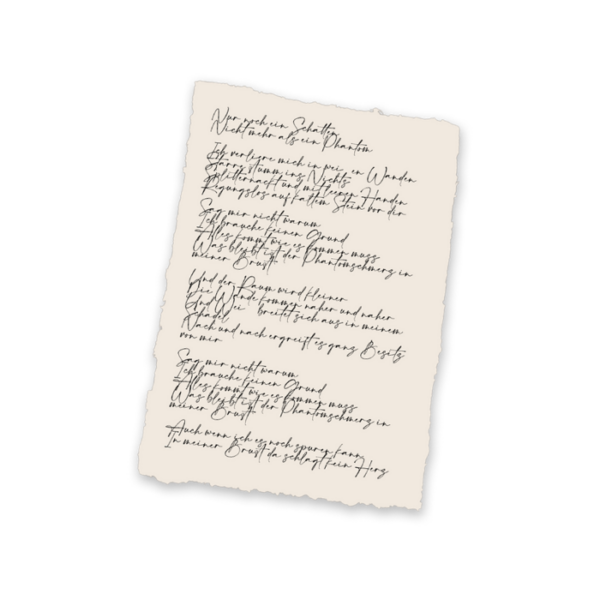 Nur noch ein Schatten
Nicht mehr als ein Phantom
Ich verliere mich in wei en Wanden
Starre stumm ins Nichts
Splitternackt und mit leeren Handen
Regungslos auf kaltem Stein vor dir
Sag mir nicht warum
Ich brauche keinen Grund
Alles kommt wie es kommen muss
Was bleibt ist der Phantomschmerz in
meiner Brust
Und der Raum wird kleiner
Die Wande kommen naher und naher
Und Wei breitet sich aus in meinem
Schadel
Nach und nach ergreift es ganz Besitz
von mir
Sag mir nicht warum
Ich brauche keinen Grund
Alles kommt wie es kommen muss
Was bleibt ist der Phantomschmerz in
meiner Brust
Auch wenn ich es noch spuren kann
In meiner Brust da schlagt kein Herz